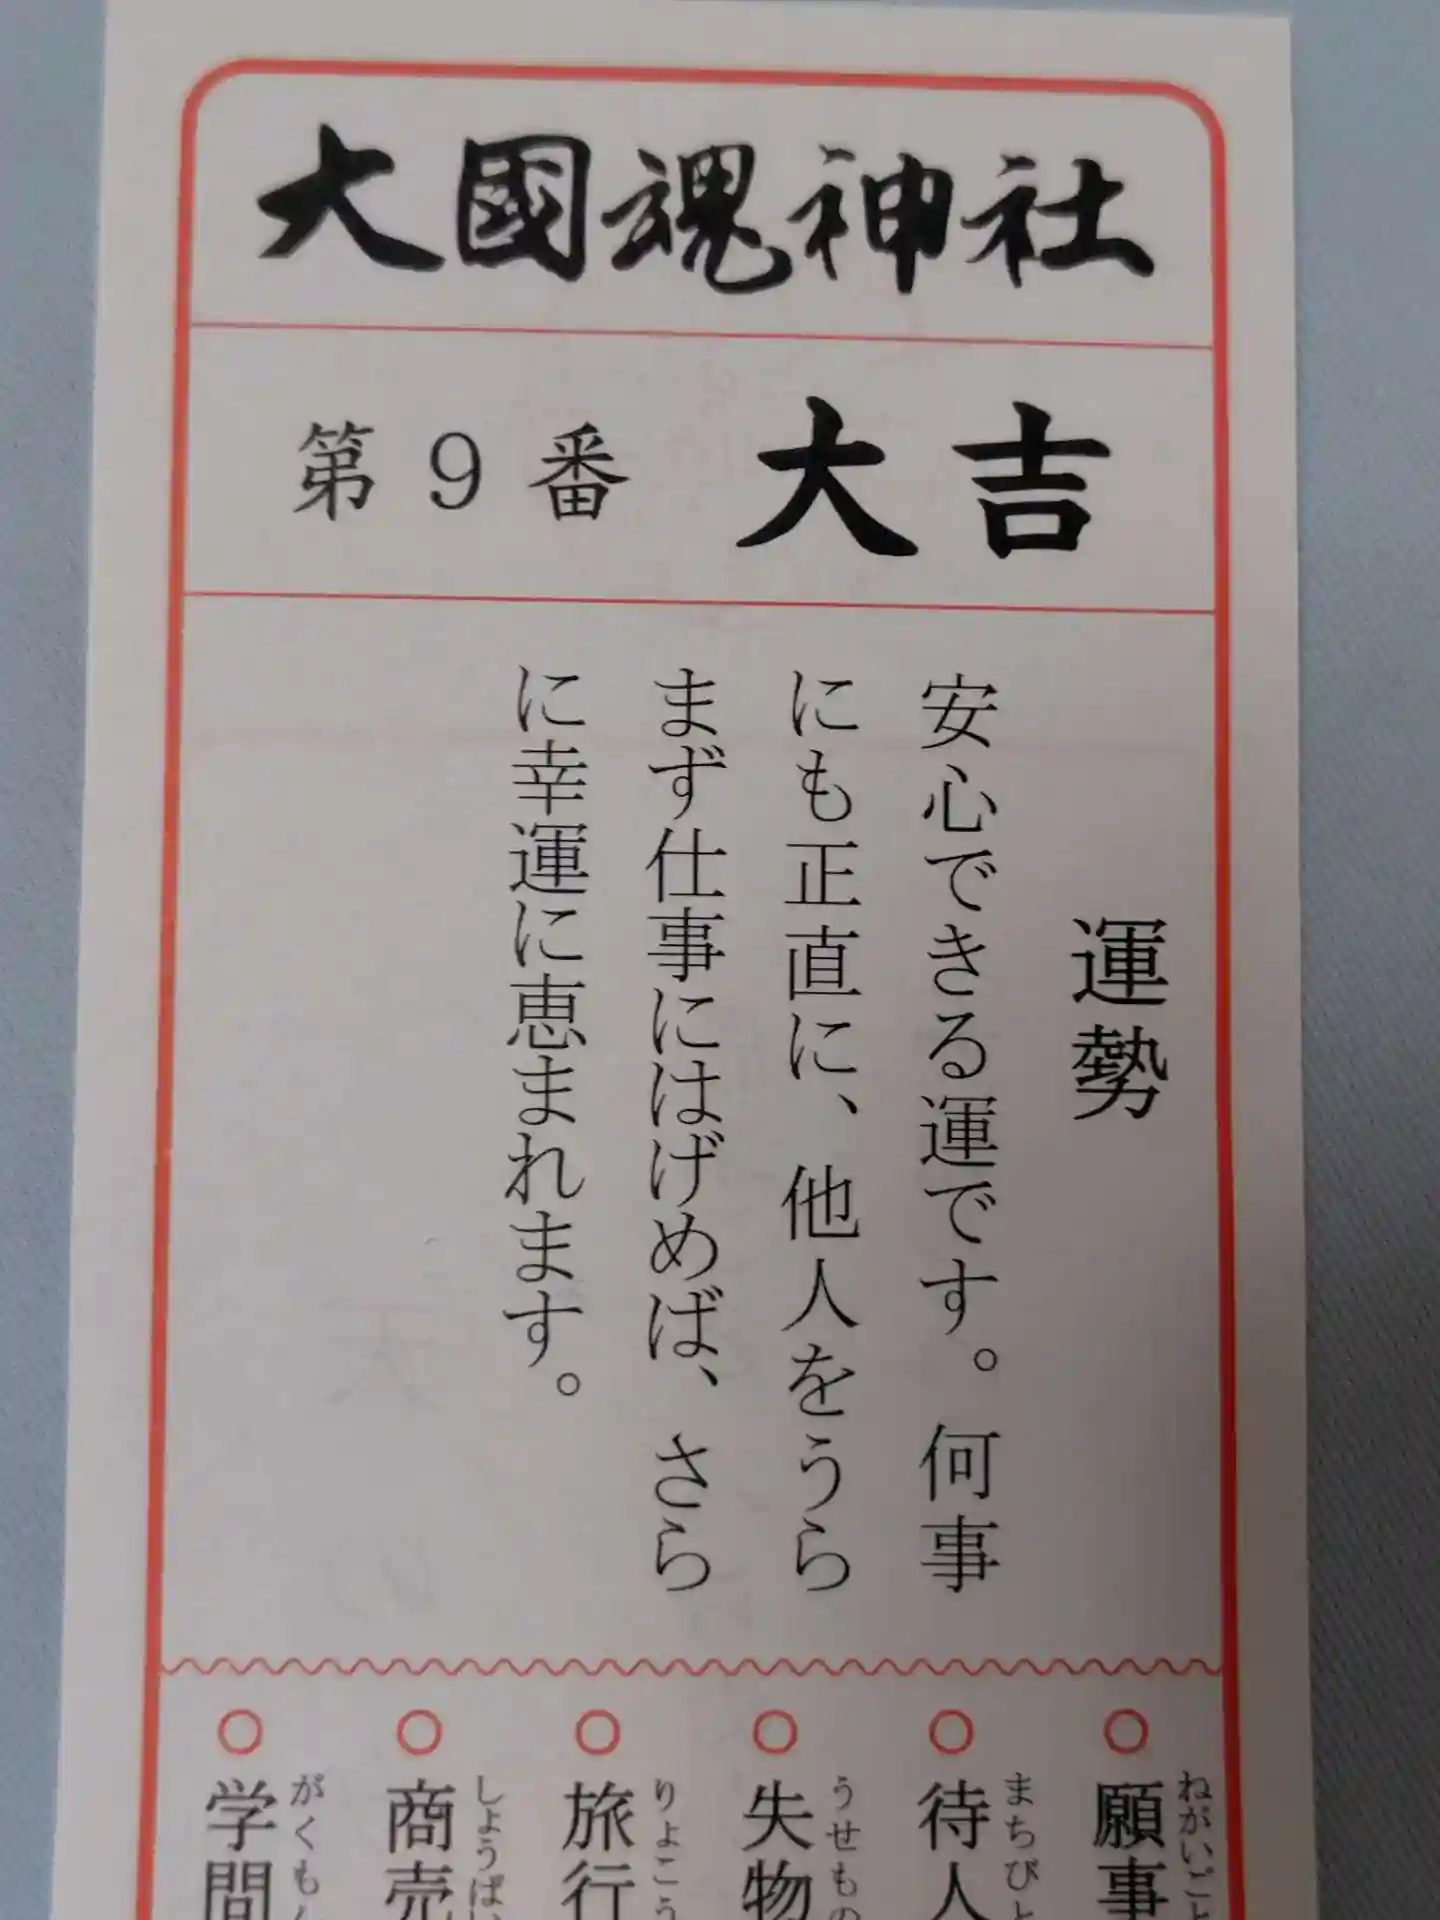 大國魂神社
第9番 大吉
運勢
安心できる運です。何事
にも正直に、他人をうら
まず仕事にはげめば、さら
に幸運に恵まれます。
願事
ねがいごと
待人
まちびと
失物
うせもの
旅行
りょこう
商売
しょうばい
学問
がくもん